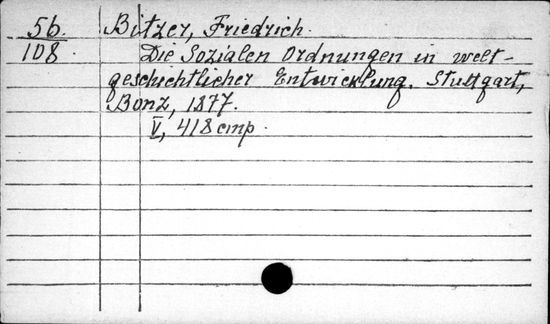 56. Bitzer, Friedrich.
108 Die Sozialen Ordnungen in welt-
geschichtlicher Entwicklung. Stuttgart,
Bonz, 1877.
V, 418 стр.